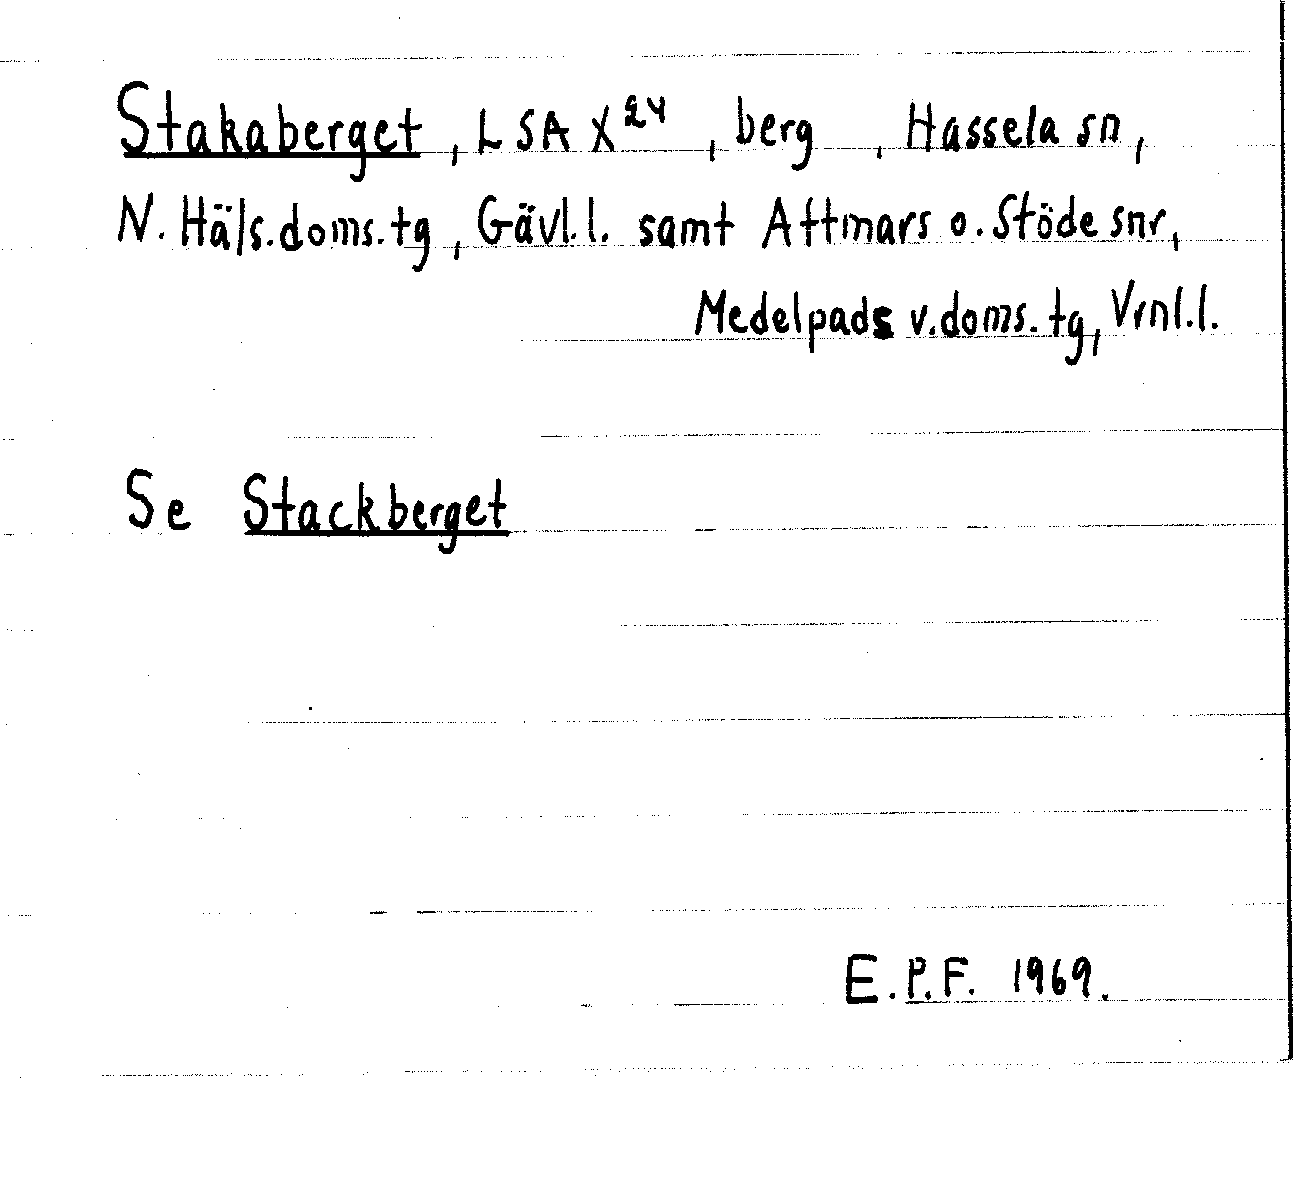 Stakaberget, LSA X24, berg, Hassela sn,
N. Häls. doms. tg, Gävl. l. samt Attmars o. Stöde snr,
Medelpads v. doms. tg, Vrnl. l.
Se Stackberget
E.P.F. 1969.